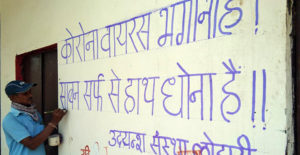 कोरोना वायरस भगाना है!
साबुन सर्फ से हाथ धोना हैं!!
उदयन्श संस्था लोहारी